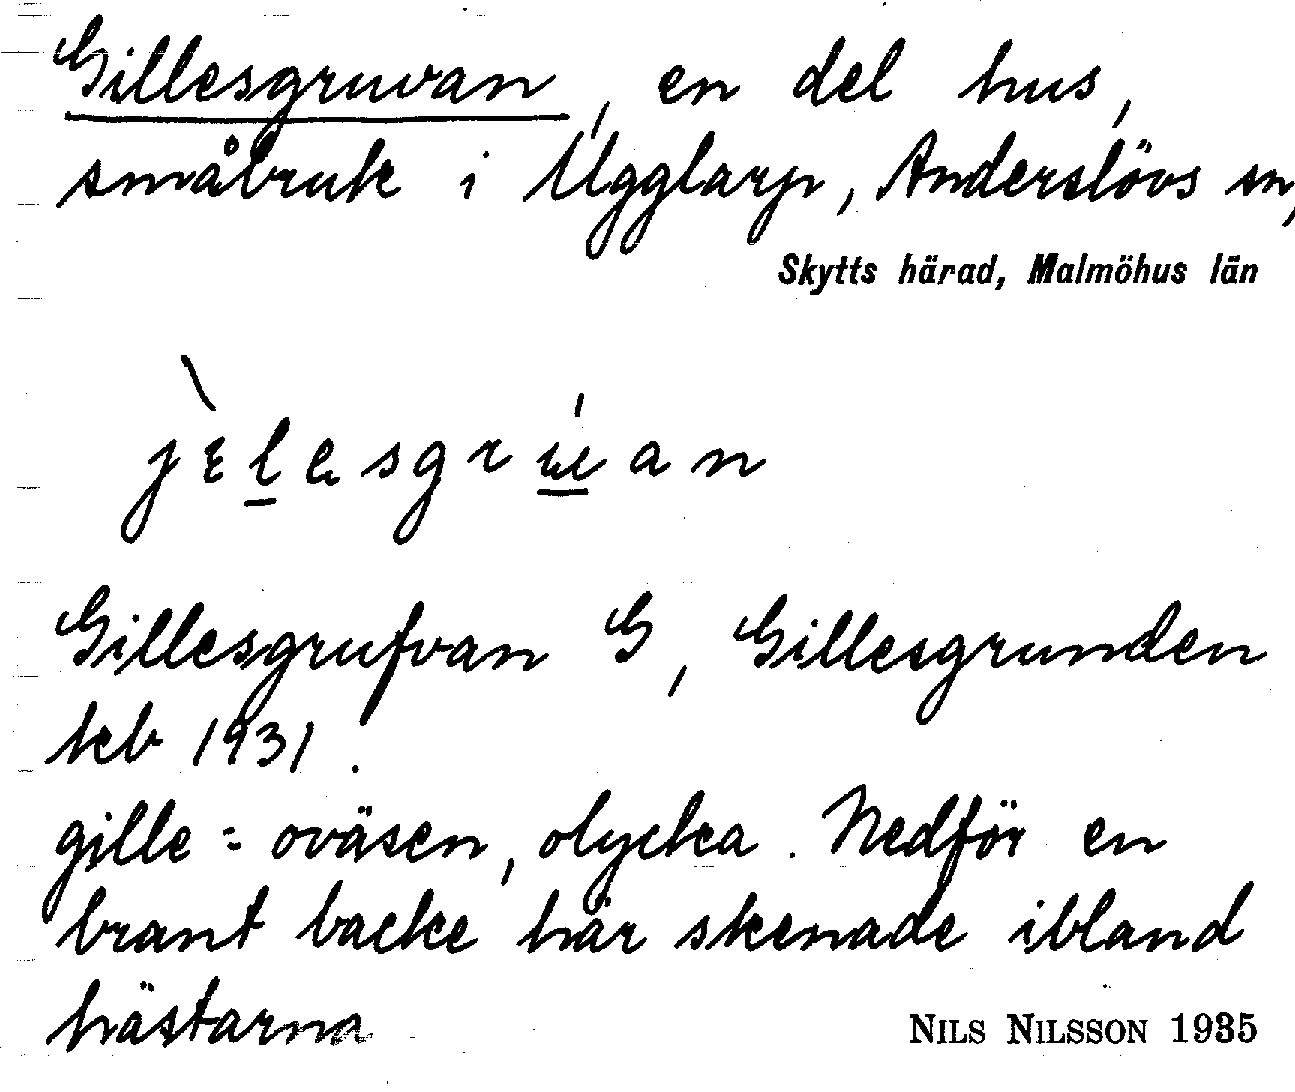 Gillesgruvan, en del hus,
småbruk i Ugglarp, Anderslövs sn,
Skytts härad, Malmöhus län
jɛ̀lesgrúan
Gillesgrufvan G, Gillesgrunden
kb 1931.
gille = oväsen, olycka. Nedför en
brant backe här skenade ibland
hästarna
NILS NILSSON 1935